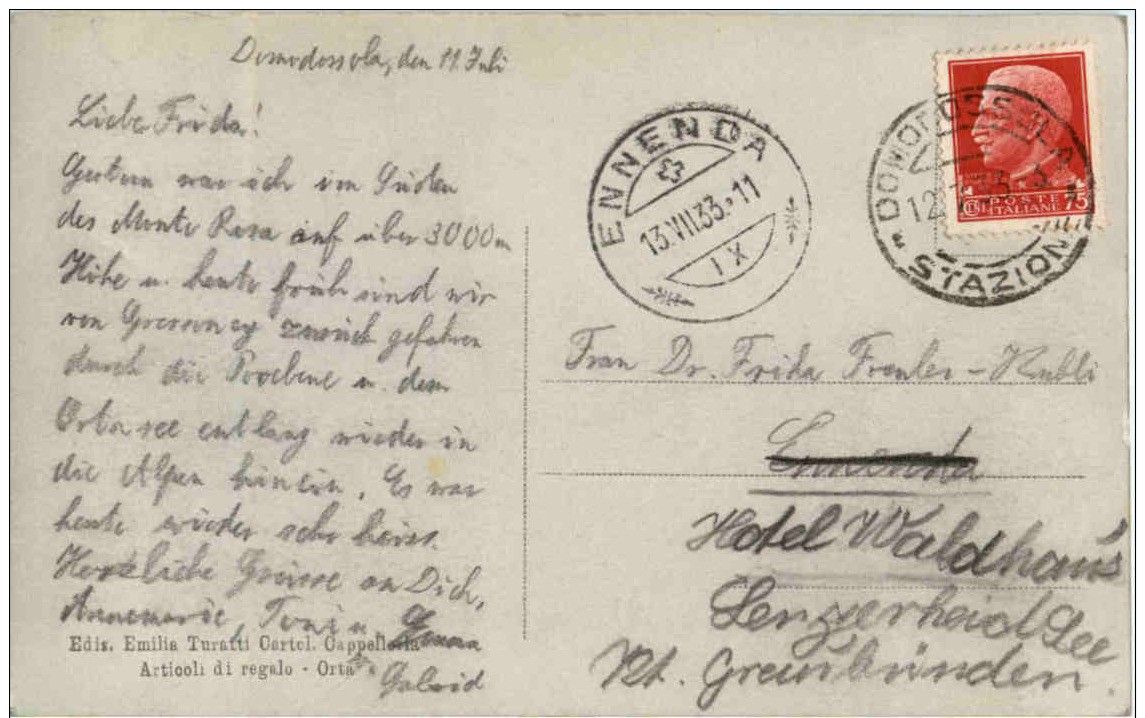 Domodossola, den 11. Juli
Liebe Frida!
Gestern war ich im Süden
des Monte Rosa auf über 3000m
Höhe u. heute früh sind wir
von Gressoney zurück gefahren
durch die Poebene u. dem
Ortasee entlang wieder in
die Alpen hinein. Es war
heute wieder sehr heiss.
Herzliche Grüsse an Dich,
Annemarie, Toni u.
Edis. Emilia Turatti Cartol. Cappelleria
Articoli di regalo - Orta
ENNENDA
13.VII.33.-11
IX
DOMODOSSOLA
STAZION
POSTE
ITALIANE
75
Frau Dr. Frida Frenler-Kubli
Ennenda
Hotel Waldhaus
Lenzerheid See
Kt. Graubünden.